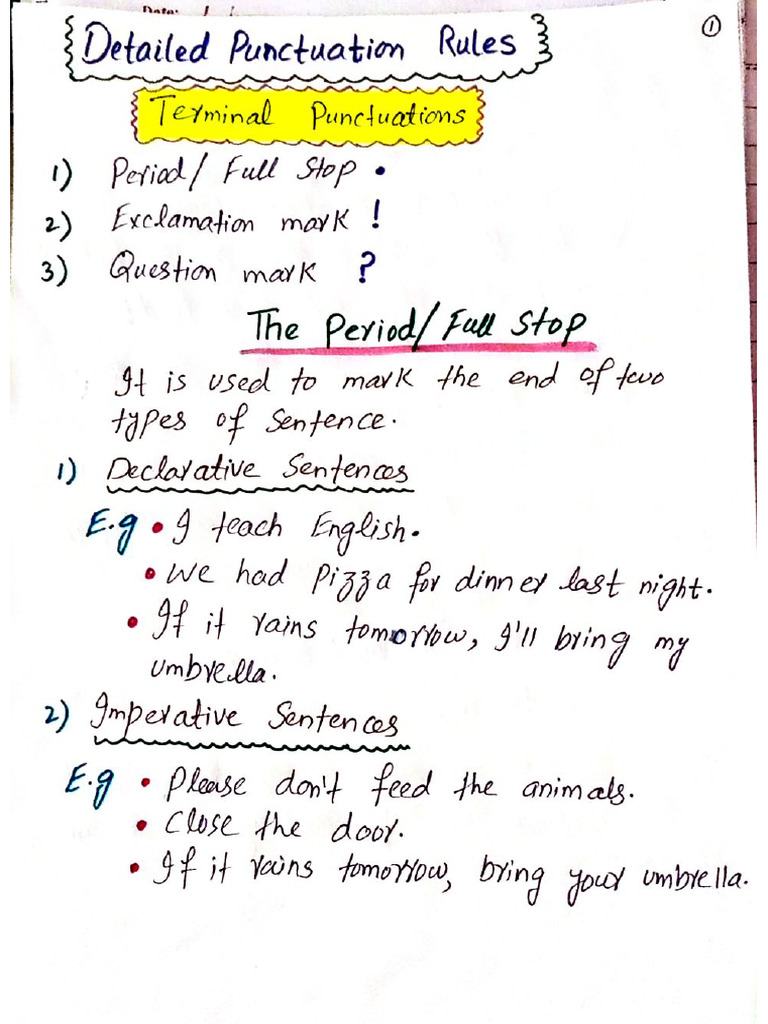 Date: / /
①
Detailed Punctuation Rules
Terminal Punctuations
1) Period/ Full Stop .
2) Exclamation mark !
3) Question mark ?
The Period/ Full Stop
It is used to mark the end of two
types of Sentence.
1) Declarative Sentences
E.g • I teach English.
• We had Pizza for dinner last night.
• If it rains tomorrow, I'll bring my
umbrella.
2) Imperative Sentences
E.g • Please don't feed the animals.
• Close the door.
• If it rains tomorrow, bring your umbrella.